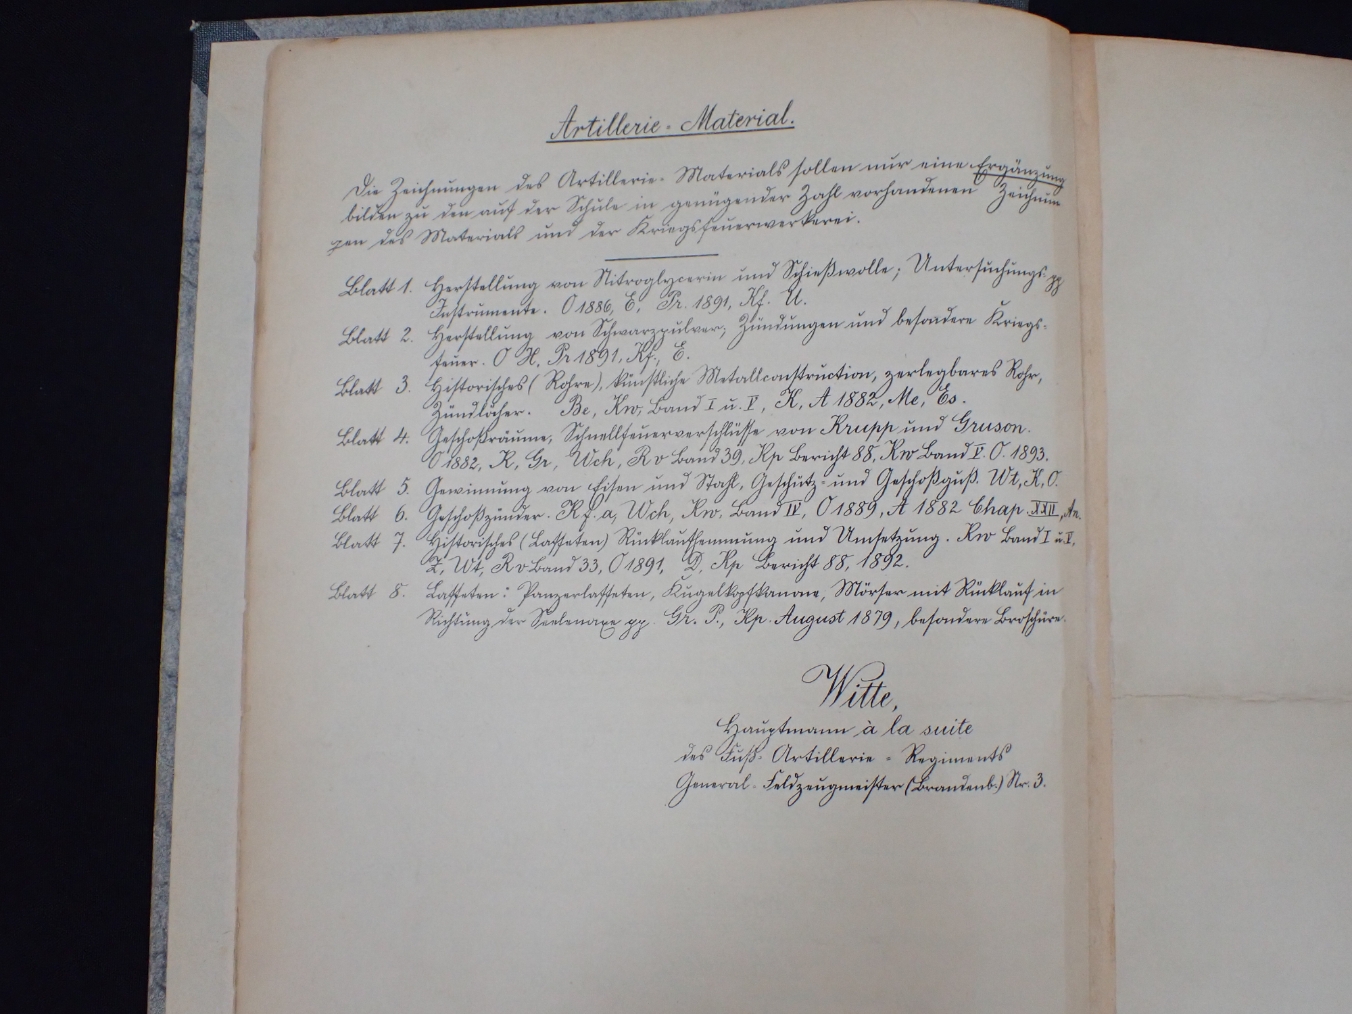 Artillerie-Material.
Die Zeichnungen des Artillerie-Materials sollen nur eine Ergänzung
bilden zu den auf der Schule in genügender Zahl vorhandenen Zeichnun
gen des Materials und der Kriegsfeuerwerkerei.
Blatt 1. Herstellung von Nitroglycerin und Schießwolle; Untersuchungs- pp
Instrumente. O 1886, E, Pr. 1891, Kf. U.
Blatt 2. Herstellung von Schwarzpulver, Zündungen und besondere Kriegs-
feuer. O H, Pr 1891, Kf., E.
Blatt 3. Historisches (Rohre), künstliche Metallconstruction, zerlegbares Rohr,
Zündlöcher. Be, Kw, Band I u. V, K, A 1882, Me, Es.
Blatt 4. Geschoßräume, Schnellfeuerverschlüsse von Krupp und Gruson.
O 1882, K, Gr, Wch, Rv Band 39, Kp Bericht 88, Kw Band V. O. 1893.
Blatt 5. Gewinnung von Eisen und Stahl, Geschütz- und Geschoßguß. Wt, K, O.
Blatt 6. Geschoßzünder. Kf. a, Wch, Kw. Band IV, O 1889, A 1882 Chap XXII, An.
Blatt 7. Historisches (Laffeten) Rücklaufhemmung und Umsetzung. Kw Band I u V,
Wt, Rv Band 33, O 1891, D, Kp Bericht 88, 1892.
Blatt 8. Laffeten: Panzerlaffeten, Kugelkopfkanone, Mörser mit Rücklauf in
Richtung der Seelenaxe pp. Gr. P., Kp. August 1879, besondere Broschüre.
Witte,
Hauptmann à la suite
des Fuß-Artillerie-Regiments
General-Feldzeugmeister (Brandenb.) Nr. 3.